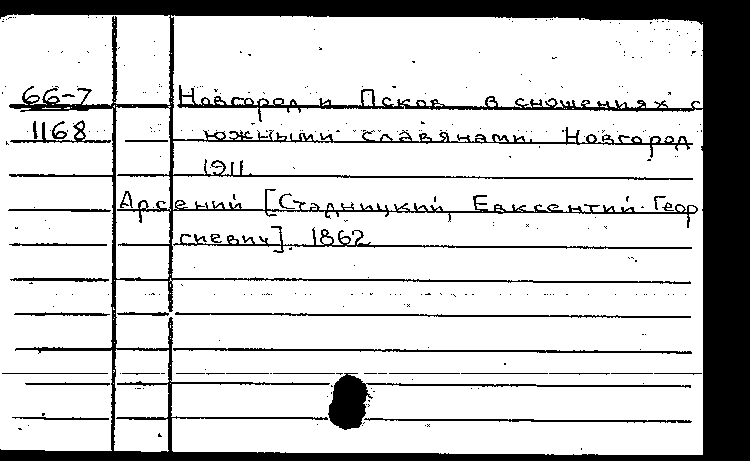 66-7 Новгород и Псков в сношениях с
1168 южными славянами. Новгород,
1911.
Арсений [Стадницкий, Евксентий Геор-
гиевич]. 1862